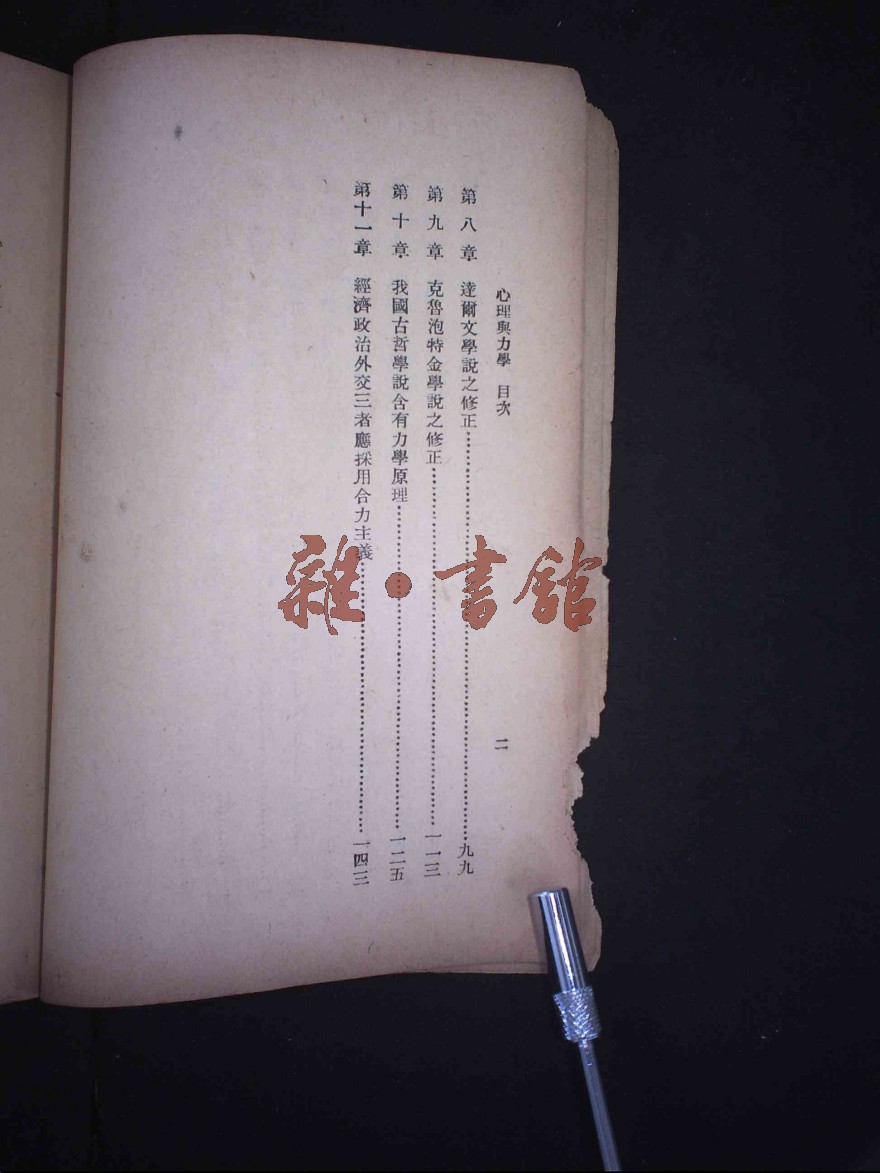 心理與力學 目次 二
第八章 達爾文學說之修正……九九
第九章 克魯泡特金學說之修正……一一三
第十章 我國古哲學說含有力學原理……一二五
第十一章 經濟政治外交三者應採用合力主義……一四三
雜·書館